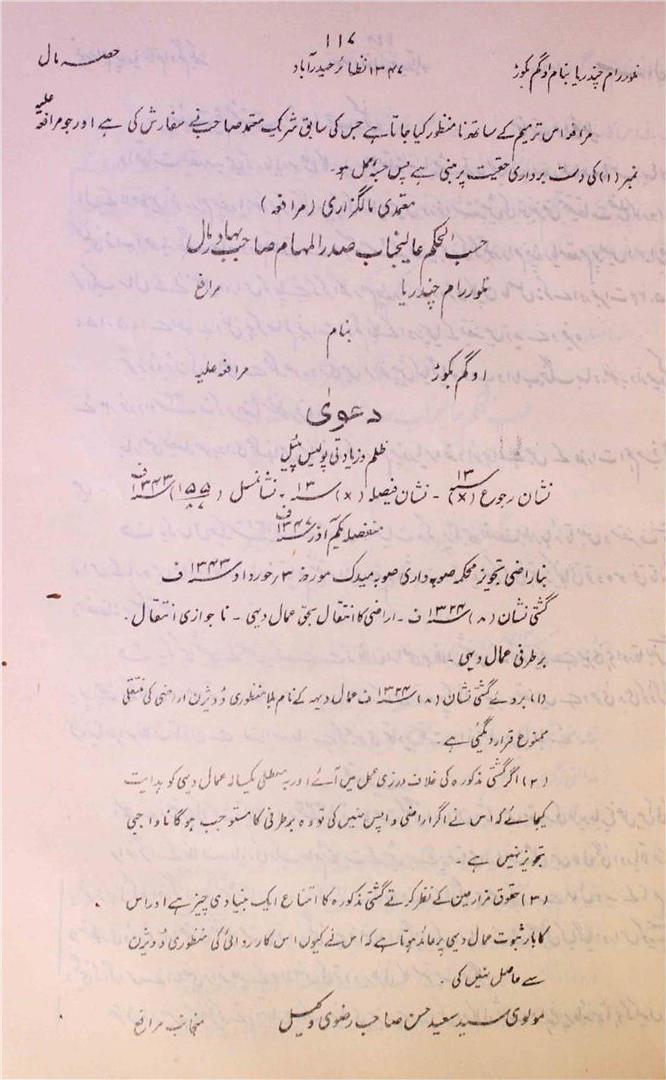 ۱۱۷
نلور رام چندریا بنام اوگم کوڑ ۱۳۴۷ نظائر حیدرآباد حصہ مال
مرافعہ اس ترمیم کے ساتھ نامنظور کیا جاتا ہے جس کی سابق شریک معتمد صاحب نے سفارش کی ہے اور جو مرافعہ علیہ
نمبر (۱) کی دست برداری حقیت پر مبنی ہے پس حسبہ عمل ہو۔
معتمدی مالگزاری (مرافعہ)
حسب الحکم عالیجناب صدر المہام صاحب بہادر مال
نلور رام چندریا مرافع
بنام
اوگم کوڑ مرافعہ علیہ
دعویٰ
ظلم و زیادتی پولیس پٹیل
نشان رجوع (×) ۱۳ - نشان فیصلہ (×) ۱۳ - نشانسل (۱۵۵) ۱۳۴۳ ف
منفصلہ یکم آذر ۱۳۴۷ ف
بناراضی تجویز محکمہ صوبہ داری صوبہ میدک مورخہ ۳ رخورداد ۱۳۴۳ ف
گشتی نشان (۸) ۱۳۲۴ ف - اراضی کا انتقال بحق عمال دیہی - نا جوازی انتقال۔
برطرفی عمال دیہی۔
(۱) بروئے گشتی نشان (۸) ۱۳۲۴ ف عمال دیہہ کے نام بلا منظوری ڈویژن اراضی کی منتقلی
ممنوع قرار دیگئی ہے۔
(۲) اگر گشتی مذکورہ کی خلاف ورزی عمل میں آئے اور بہ معطلی یکسالہ عمال دیہی کو ہدایت
کیجائے کہ اس نے اگر اراضی واپس نہیں کی تو وہ برطرفی کا مستوجب ہوگا نا واجبی
تجویز نہیں ہے۔
(۳) حقوق مزارعین کے نظر کرتے گشتی مذکورہ کا امتناع ایک بنیادی چیز ہے اور اس
کا بار ثبوت عمال دیہی پر عائد ہوتا ہے کہ اس نے کیوں اس کارروائی کی منظوری ڈویژن
سے حاصل نہیں کی۔
مولوی سید سعید حسن صاحب رضوی وکیل منجانب مرافع